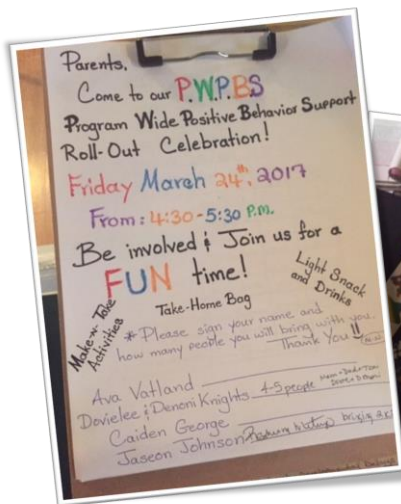 Parents,
Come to our P.W.P.B.S
Program Wide Positive Behavior Support
Roll-Out Celebration!
Friday March 24th, 2017
From: 4:30-5:30 P.M.
Be involved & Join us for a
FUN time!
Light Snack
and Drinks
Make-n-Take
Activities
Take-Home Bag
* Please sign your name and
how many people you will bring with you.
Thank You!!
Ava Vatland
Dovielee & Denoni Knights 4-5 people
Caiden George
Jaseon Johnson